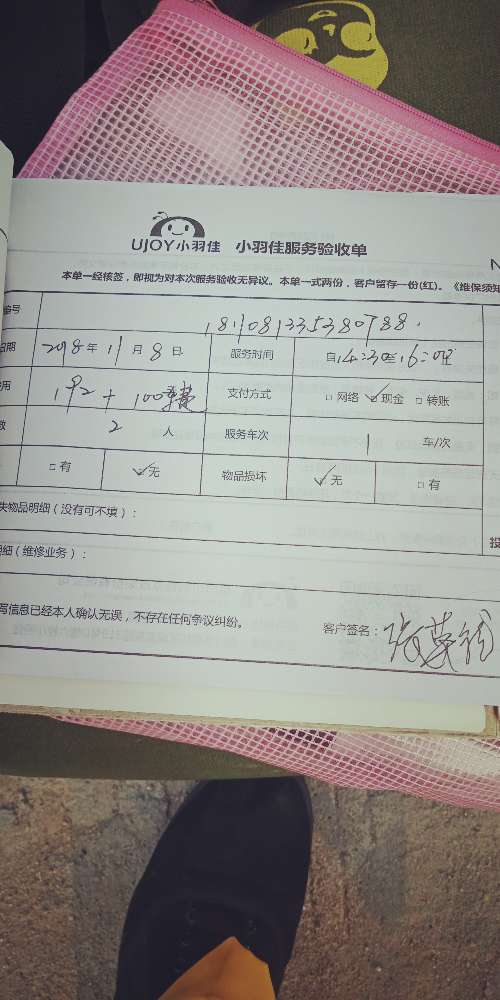 UJOY小羽佳 小羽佳服务验收单
N
本单一经核签，即视为对本次服务验收无异议。本单一式两份，客户留存一份(红)。《维保须知
编号
日期 2018年 11月 8日 服务时间 自14:30至16:
用 192 + 100 支付方式 □网络 ☑现金 □转账
数 2 人 服务车次 1 车/次
□有 ☑无 物品损坏 ☑无 □有
失物品明细（没有可不填）：
投
明细（维修业务）：
写信息已经本人确认无误，不存在任何争议纠纷。 客户签名：